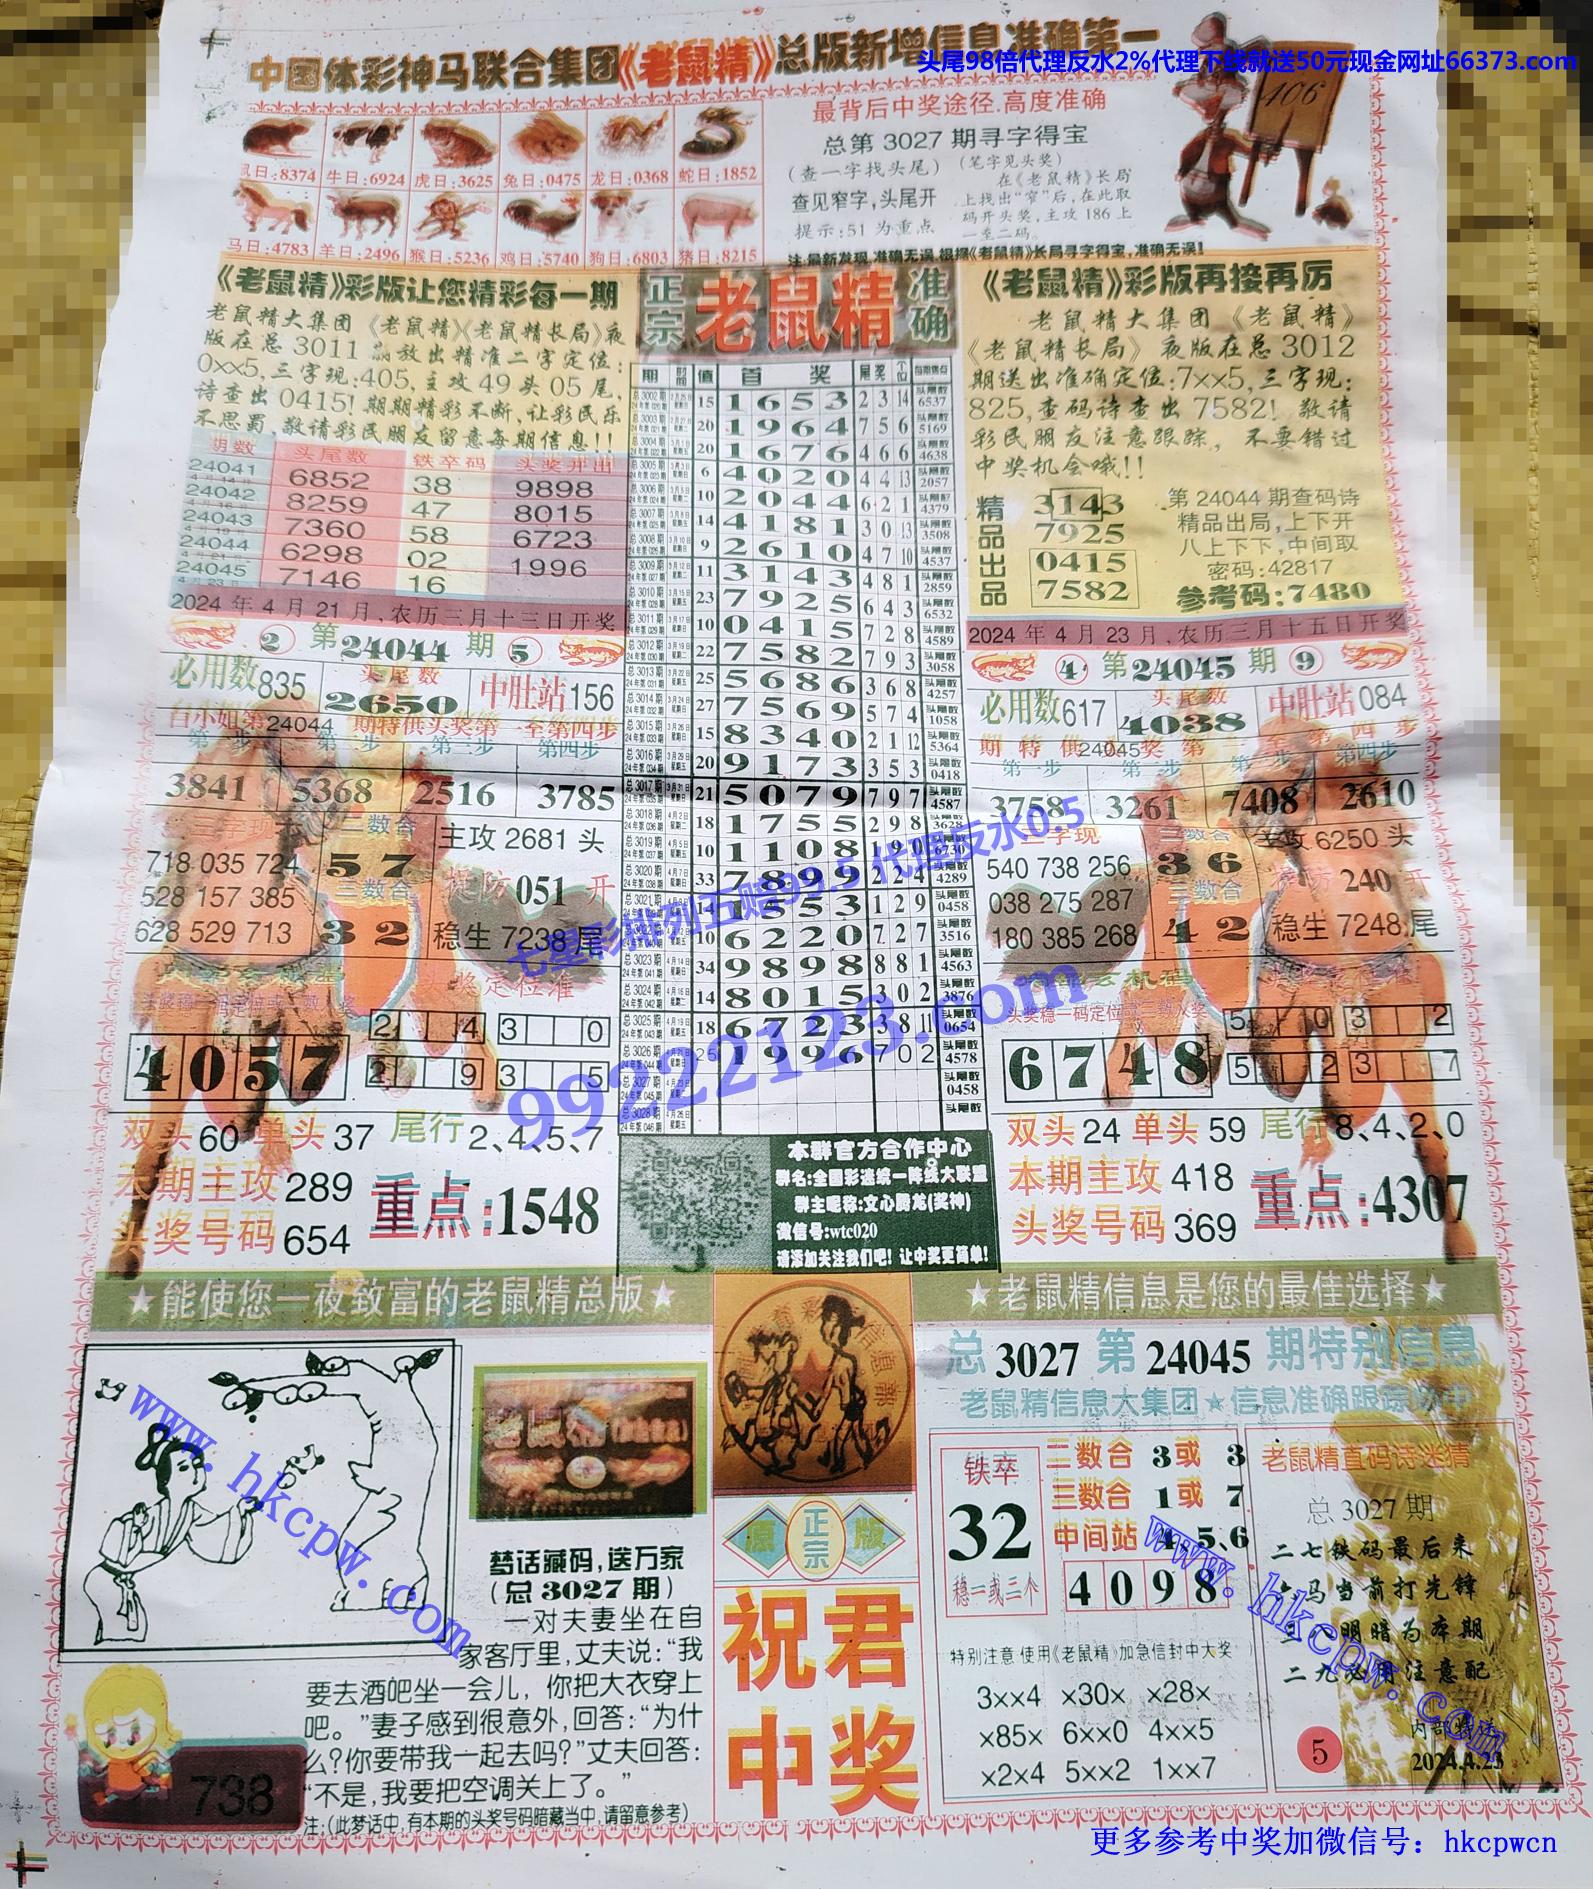 中国体彩神马联合集团《老鼠精》总版新增信息准确第一
头尾98倍代理反水2%代理下线就送50元现金网址66373.com
406
鼠日:8374 牛日:6924 虎日:3625 兔日:0475 龙日:0368 蛇日:1852
马日:4783 羊日:2496 猴日:5236 鸡日:5740 狗日:6803 猪日:8215
最背后中奖途径.高度准确
总第 3027 期寻字得宝
(查一字找头尾) (笔字见头奖)
查见窄字,头尾开
提示:51 为重点
在《老鼠精》长局
上找出“窄”后,在此取
码开头奖,主攻 186 上
一至二码。
注:最新发现,准确无误,根据《老鼠精》长局寻字得宝,准确无误!
《老鼠精》彩版让您精彩每一期
老鼠精大集团《老鼠精》《老鼠精长局》夜
版在总 3011 期放出精准二字定位:
0xx5,三字现:405,主攻49头05尾,
诗查出0415!期期精彩不断,让彩民乐
不思蜀,敬请彩民朋友留意每期信息!!
期数 头尾数 铁卒码 头奖开出
24041 6852 38 9898
24042 8259 47 8015
24043 7360 58 6723
24044 6298 02 1996
24045 7146 16
4月23日
2024年4月21月,农历三月十三日开奖
② 第24044期 ⑤
必用数835 头尾数 2650 中肚站156
白小姐第24044期特供头奖第一至第四步
第一步 第二步 第三步 第四步
3841 5368 2516 3785
三字现 二数合 主攻 2681 头
718 035 724 5 7
528 157 385 三数合 提防051开
628 529 713 3 2 稳生 7238 尾
头奖定位准
4 0 5 7
2 4 3 0
2 9 3 5
双头60 单头37 尾行2、4、5、7
本期主攻289
头奖号码654
重点:1548
正宗 老鼠精 准确
期 时间 值 首奖 尾奖 个位 每期焦点
总3002期 15 1 6 5 3 2 3 14 头尾数 6537
总3003期 20 1 9 6 4 7 5 6 头尾数 5169
总3004期 20 1 6 7 6 4 6 6 头尾数 4638
总3005期 6 4 0 2 0 4 4 13 头尾数 2057
总3006期 10 2 0 4 4 6 2 1 头尾数 4379
总3007期 14 4 1 8 1 3 0 13 头尾数 3508
总3008期 9 2 6 1 0 4 7 10 头尾数 4537
总3009期 11 3 1 4 3 4 8 1 头尾数 2859
总3010期 23 7 9 2 5 6 4 3 头尾数 6532
总3011期 10 0 4 1 5 7 2 8 头尾数 4589
总3012期 22 7 5 8 2 7 9 3 头尾数 3058
总3013期 25 5 6 8 6 3 6 8 头尾数 4257
总3014期 27 7 5 6 9 5 7 4 头尾数 1058
总3015期 15 8 3 4 0 2 1 12 头尾数 5364
总3016期 20 9 1 7 3 3 5 3 头尾数 0418
总3017期 21 5 0 7 9 7 9 7 头尾数 4587
总3018期 18 1 7 5 5 2 9 8 头尾数 3628
总3019期 10 1 1 0 8 1 9 0 头尾数 6730
总3020期 33 7 8 9 9 2 2 4 头尾数 4289
总3021期 14 1 5 5 3 1 2 9 头尾数 0458
总3022期 10 6 2 2 0 7 2 7 头尾数 3516
总3023期 34 9 8 9 8 8 8 1 头尾数 4563
总3024期 14 8 0 1 5 3 0 2 头尾数 3876
总3025期 18 6 7 2 3 3 8 11 头尾数 0654
总3026期 25 1 9 9 6 7 0 2 头尾数 4578
总3027期 头尾数 0458
总3028期 头尾数
七星彩排列五赔99.5 代理反水0.5
99222123.com
本群官方合作中心
群名:全国彩迷统一阵线大联盟
群主昵称:文心腾龙(奖神)
微信号:wtc020
请添加关注我们吧!让中奖更简单!
《老鼠精》彩版再接再厉
老鼠精大集团《老鼠精》
《老鼠精长局》夜版在总3012
期送出准确定位:7xx5,三字现:
825,查码诗查出 7582! 敬请
彩民朋友注意跟踪, 不要错过
中奖机会哦!!
精品出品
3143
7925
0415
7582
第24044期查码诗
精品出局,上下开
八上下下,中间取
密码:42817
参考码:7480
2024年4月23月,农历三月十五日开奖
④ 第24045期 ⑨
必用数617 头尾数 4038 中肚站084
期特供24045头奖第一至第四步
第一步 第二步 第三步 第四步
3758 3261 7408 2610
三字现 二数合 主攻 6250 头
540 738 256 3 6
038 275 287 三数合 提防240开
180 385 268 4 2 稳生 7248 尾
头奖稳一码定位或二数入奖
6 7 4 8
5 10 3 2
5 2 3 7
双头24 单头59 尾行8、4、2、0
本期主攻418
头奖号码369
重点:4307
★能使您一夜致富的老鼠精总版★
★老鼠精信息是您的最佳选择★
www.hkcpw.com
梦话藏码,送万家
(总3027期)
一对夫妻坐在自
家客厅里,丈夫说:“我
要去酒吧坐一会儿, 你把大衣穿上
吧。”妻子感到很意外,回答:“为什
么?你要带我一起去吗?”丈夫回答:
“不是,我要把空调关上了。”
注:(此梦话中,有本期的头奖号码暗藏当中,请留意参考)
738
原 正宗 版
祝君
中奖
总 3027 第 24045 期特别信息
老鼠精信息大集团★信息准确跟踪必中
铁卒
32
稳一或三个
二数合 3或 3
三数合 1或 7
中间站 4、5、6
4 0 9 8
特别注意 使用《老鼠精》加急信封中大奖
3xx4 x30x x28x
x85x 6xx0 4xx5
x2x4 5xx2 1xx7
老鼠精直码诗迷猜
总 3027 期
二七铁码最后来
六马当前打先锋
三八明暗为本期
二九必用注意配
5
2024.4.23
www.hkcpw.com
更多参考中奖加微信号: hkcpwcn